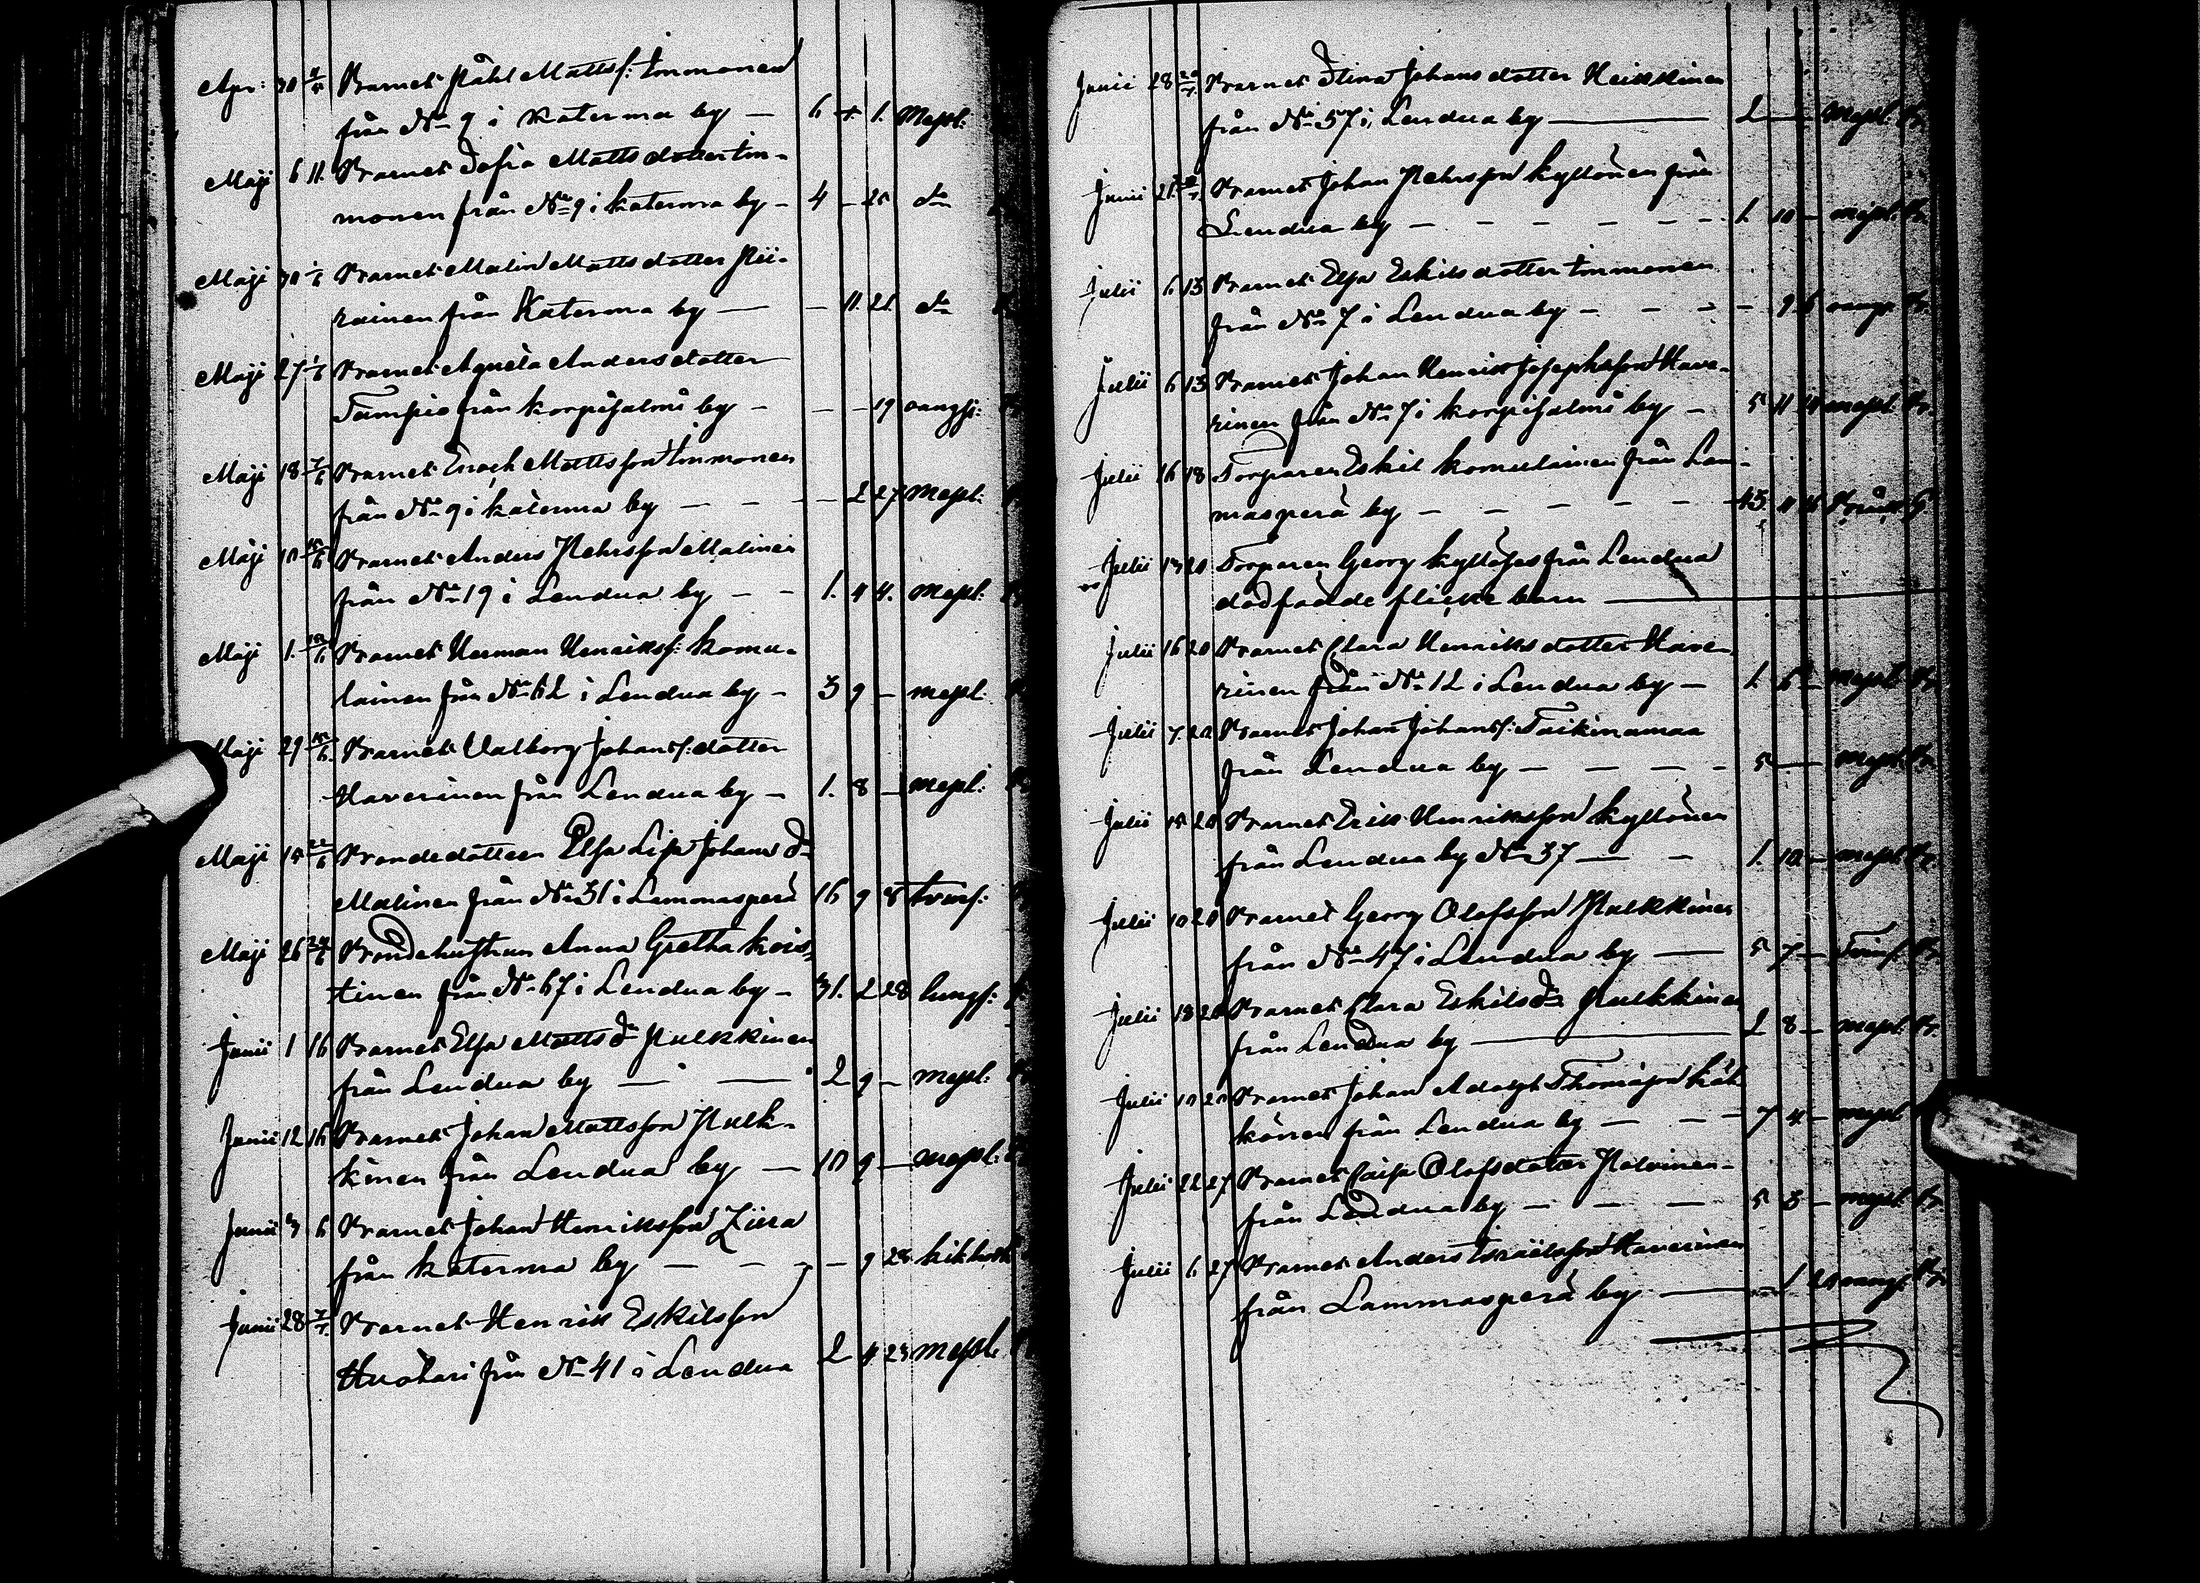 Apr: 30 4/5 Barnet Påhl Mattss: Immonen
från No 9 i Katerma by — 6 + 1. Messl:
Maji 6 11. Barnet Sofia Mattsdotter Im-
monen från No 9 i Katerma by - 4 - 25 do
Maji 30 1/6 Barnet Malin Mattsdotter Pii-
rainen från Katerma by — - 11. 21. do
Maji 27 1/6 Barnet Agneta Andersdotter
Tampio från Korpisalmi by - - - 19 oangif:
Maji 18 7/6 Barnet Enoch Mattsson Immonen
från No 9 i Katerma by - - - - 2 27 Messl:
Maji 10 15/6 Barnet Anders Pehrsson Malinen
från No 19 i Lendua by - - 1. 4 4. Messl:
Maji 1. 15/6 Barnet Herman Henrikss: Komu-
lainen från No 62 i Lendua by - 3 9 - messl:
Maji 29 15/6 Barnet Walborg Johanss:dotter
Haverinen från Lendua by - 1. 8 - messl:
Maji 15 22/6 Bondedottren Elsa Lisa Johans dr
Malinen från No 31 i Lammasperä 16 9 8 tvins:
Maji 26 24/6 Bondehustrun Anna Gretha Kois-
tinen från No 67 i Lendua by - 31. 2 28 lungs:
Junii 1 16 Barnet Elsa Matts dr Pulkkinen
från Lendua by — — 2 9 - messl:
Junii 12 16 Barnet Johan Mattsson Pulk-
kinen från Lendua by — 10 9 - messl:
Junii 3 6 Barnet Johan Henriksson Ziera
från Katerma by - - - - 9 28 kikhost
Junii 28 7/7. Barnet Henrik Eskilsson
Huotari från No 41 i Lendua 2 4 23 messl:
Junii 28 Barnet Stina Johansdotter Heikkinen
från No 57 i Lendua by — 2 — messl. Br.
Junii 21 Barnet Johan Pehrsson Kyllönen från
Lendua by - - - - - 1. 10 - messl: Br.
Julii 6 13 Barnet Elsa Eskilsdotter Immonen
från No 7 i Lendua by - - - - 9 6 oangi: Br.
Julii 6 13 Barnet Johan Henrik Josephsson Have-
rinen från No 7 i Korpisalmi by - 5 11 messl. Br.
Julii 16 18 Torparen Eskil Komulainen från Lam-
masperä by - - - - - 43. 11 16 G
Julii 13 20 Torparen Georg Kyllöses från Lendua
dödfödde flicke barn —
Julii 16 20 Barnet Clara Henriksdotter Have-
rinen från No 12 i Lendua by - 1. 6 - messl Br.
Julii 7. 20 Barnet Johan Johanss: Taikinamaa
från Lendua by - - - - 5 — messl. Br.
Julii 15 20 Barnet Erik Henriksson Kyllönen
från Lendua by No 37 — - 1. 10. - messl. Br.
Julii 10 20 Barnet Georg Olofsson Pulkkinen
från No 47 i Lendua by — 5 7 - Br.
Julii 18 20 Barnet Clara Eskils dr Pulkkinen
från Lendua by — 2 8 - messl. Br.
Julii 10 20 Barnet Johan Adolph Thomasson Käk-
könen från Lendua by — - - 7 4. - messl
Julii 22 27 Barnet Caisa Olofsdotter Polvinen-
från Lendua by - - - 5 3 - messl. Br.
Julii 6. 27 Barnet Anders Israëlsson Haverinen
från Lammasperä by — 1 oangi. Br.